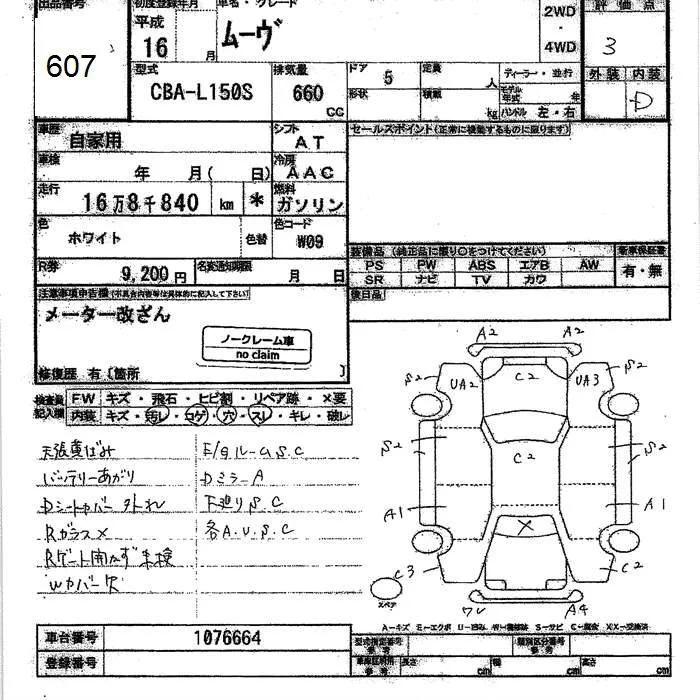 出品番号 初度登録年月 車名・グレード 評価点
607 平成 16 月 ムーヴ 2WD ・ 4WD 3
型式 排気量 ドア 5 定員 人 ディーラー・並行 外装 内装
CBA-L150S 660 CC 形状 積載 kg モデル年式 年 D
ハンドル 左・右
車歴 自家用 シフト AT セールスポイント(正常に機能するものに限ります)
車検 年 月( 日) 冷房 AAC
走行 16万8千840 km * 燃料 ガソリン
色 ホワイト 色替 色コード W09
装備品 (純正品に限り○をつけてください) 新車保証書
PS PW ABS エアB AW 有・無
SR ナビ TV カワ
R券 9,200円 名変通知期限 月 日 後日品
注意事項申告欄(不具合内容等は具体的に記入して下さい)
メーター改ざん
ノークレーム車
no claim
修復歴 有〔箇所 〕
検査員記入欄 FW キズ・飛石・ヒビ割・リペア跡・×要
内装 キズ・汚レ・コゲ・穴・スレ・キレ・破レ
バッテリーあがり Dミラー A
Dシートカバー外れ 下廻りS.C
Rガラス× 各A.U.S.C
Rゲート開かず未検
Wカバー欠
A2 A2
S2 UA2 C2 UA3 S2
S2 C2 S2
A1 × A1
C3 C2
スペア ワレ A4
A-キズ E-エクボ U-凹み W-補修跡 S-サビ C-腐食 X/XX-交換済
車台番号 1076664 型式指定番号 参考 類別区分番号 参考
登録番号 長さ cm 幅 cm 高さ cm